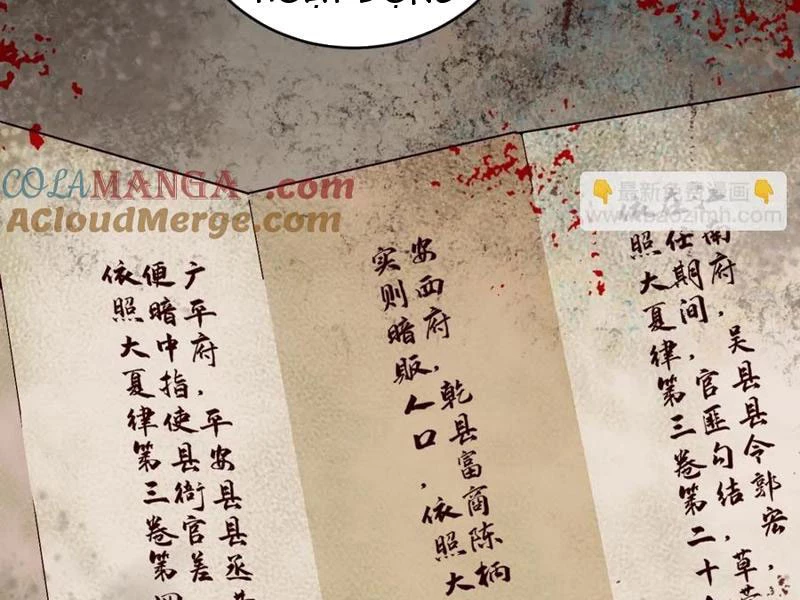 COLAMANGA.com
ACloudMerge.com
最新免费漫画
www.baozimh.com
广平府，平安县县丞
便暗中指使县衙官差
依照大夏律第三卷第四
安西府，乾县富商陈柄
实则暗贩人口，依照大
南府，吴县县令郭宏，
任期间，官匪勾结，草
照大夏律第三卷第二十